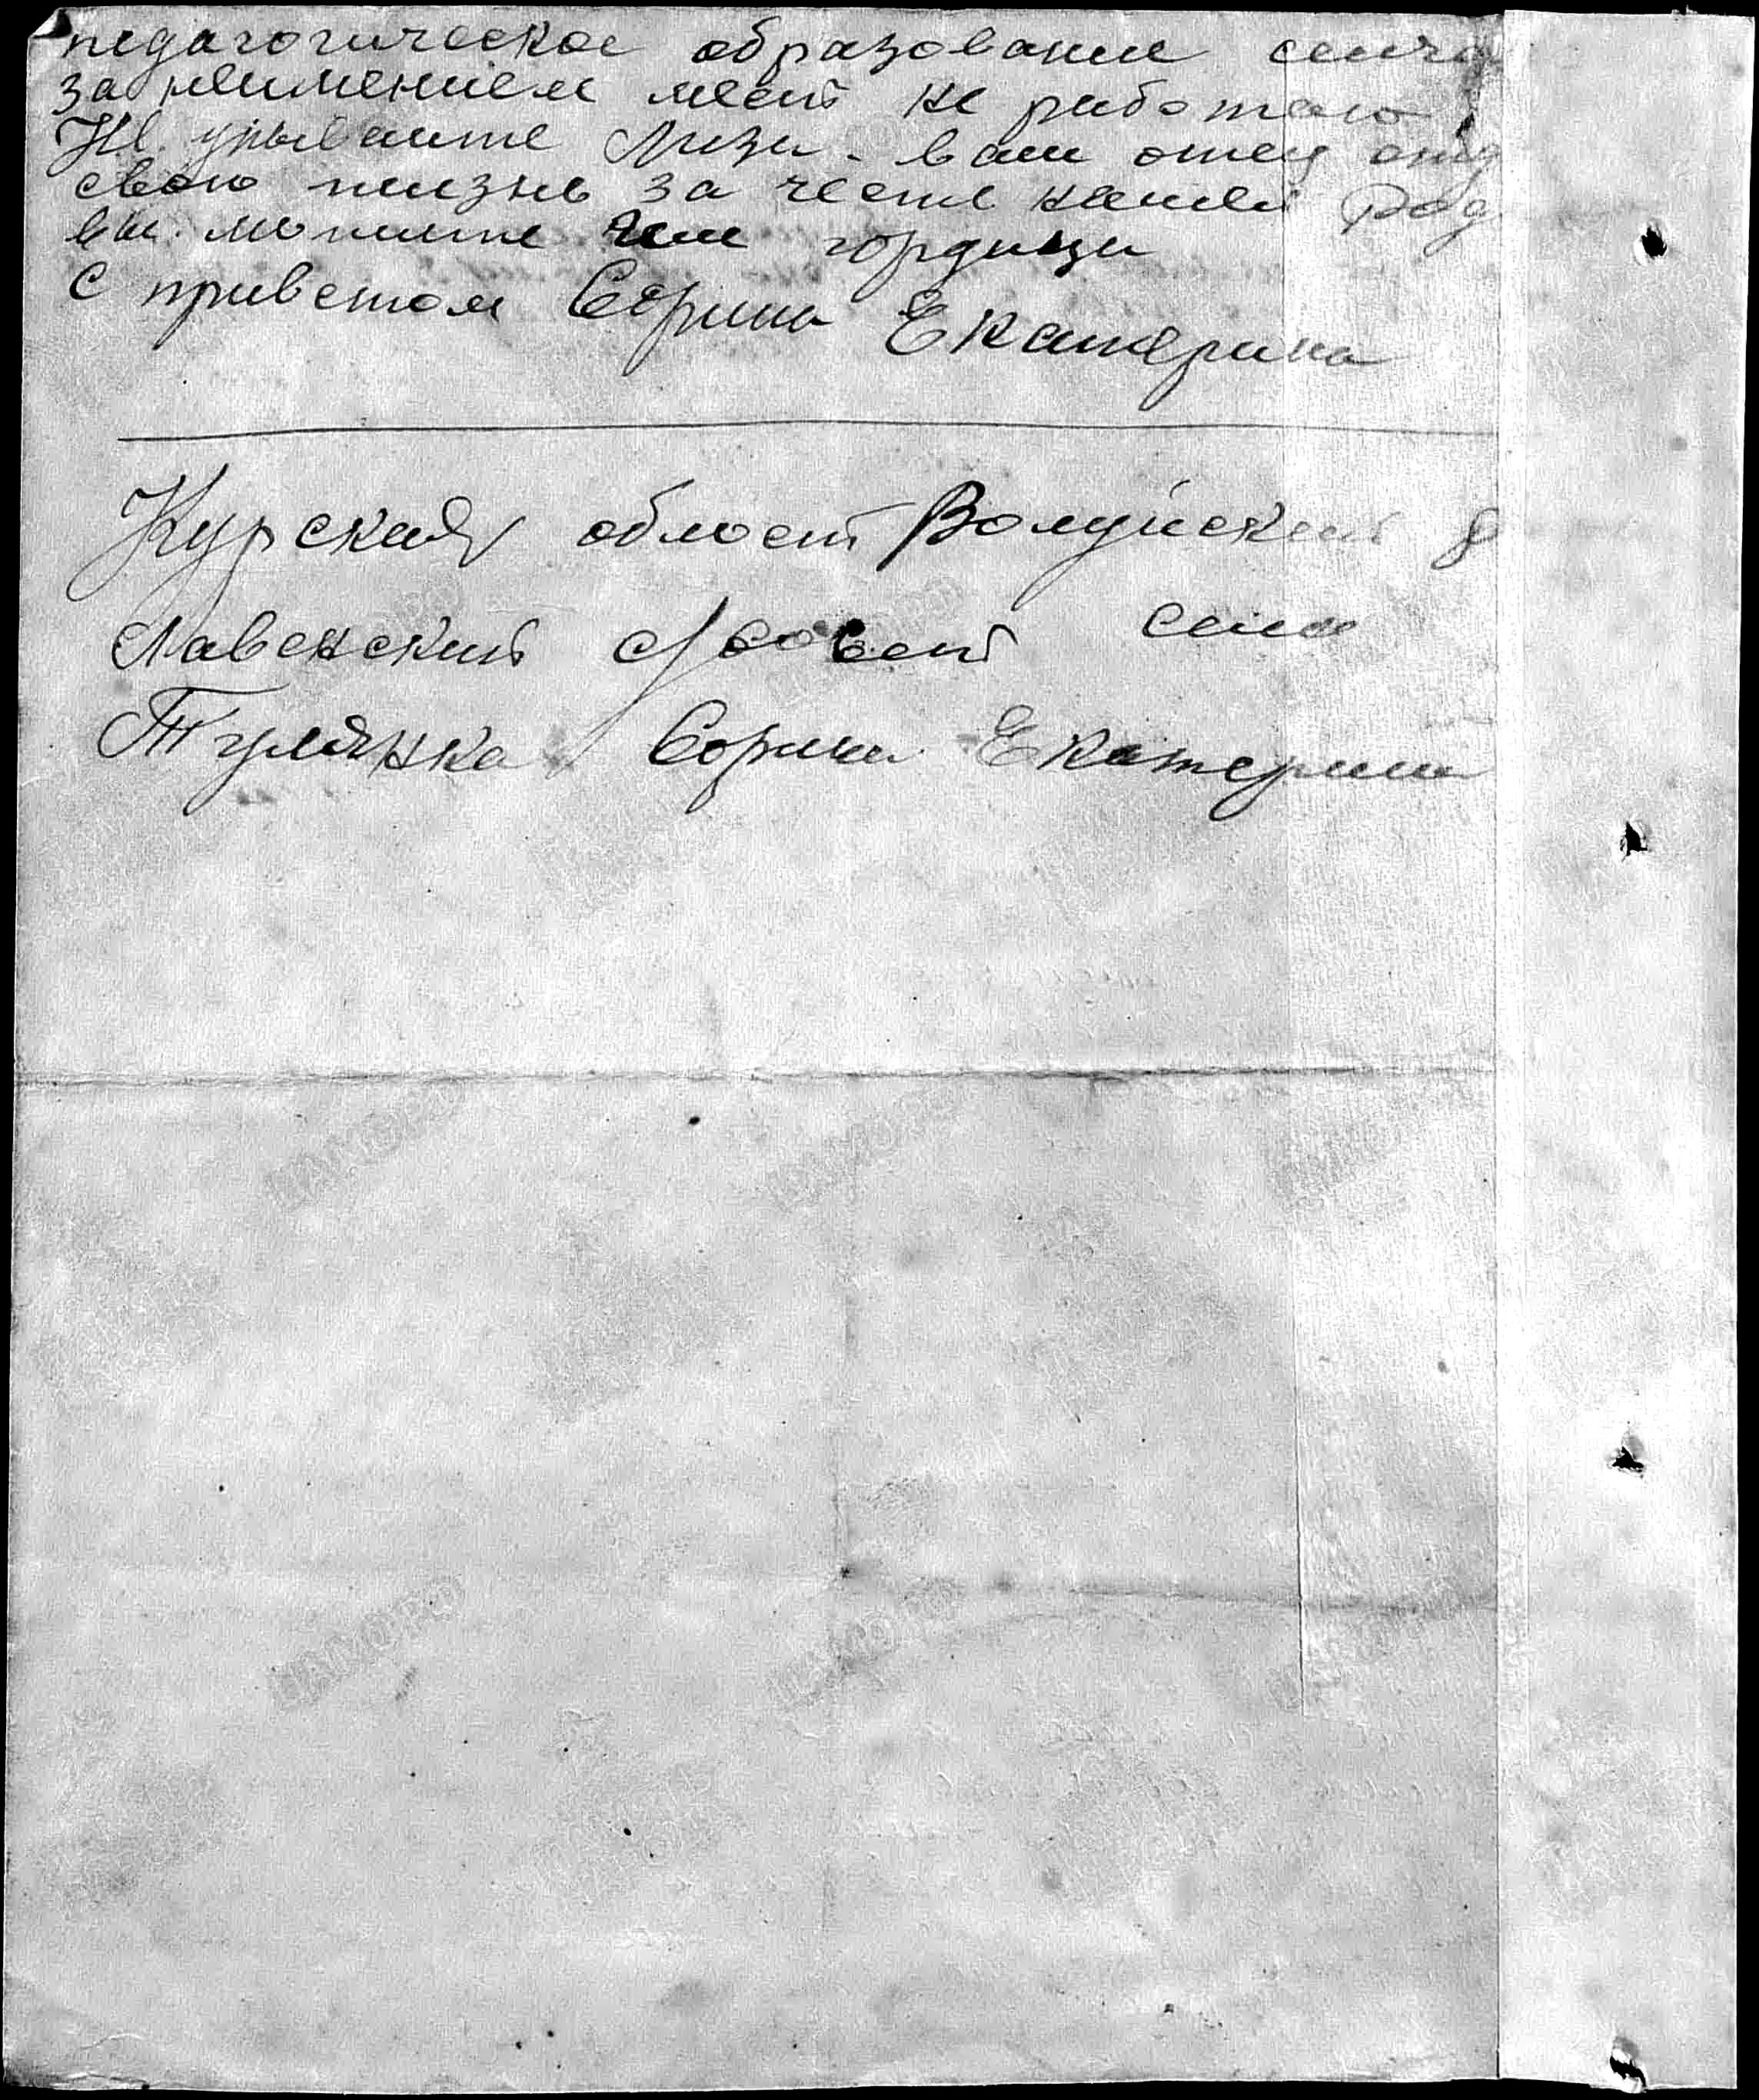 педагогическое образование сейча
за неимением мест не работаю.
Не унывайте Лиза. ваш отец отд
свою жизнь за честь нашей Род
вы можите им гордица
С приветом Сорина Екатерина
Курская област Волуйский р
Лавенский с/совет село
Тулянка Сорина Екатерина